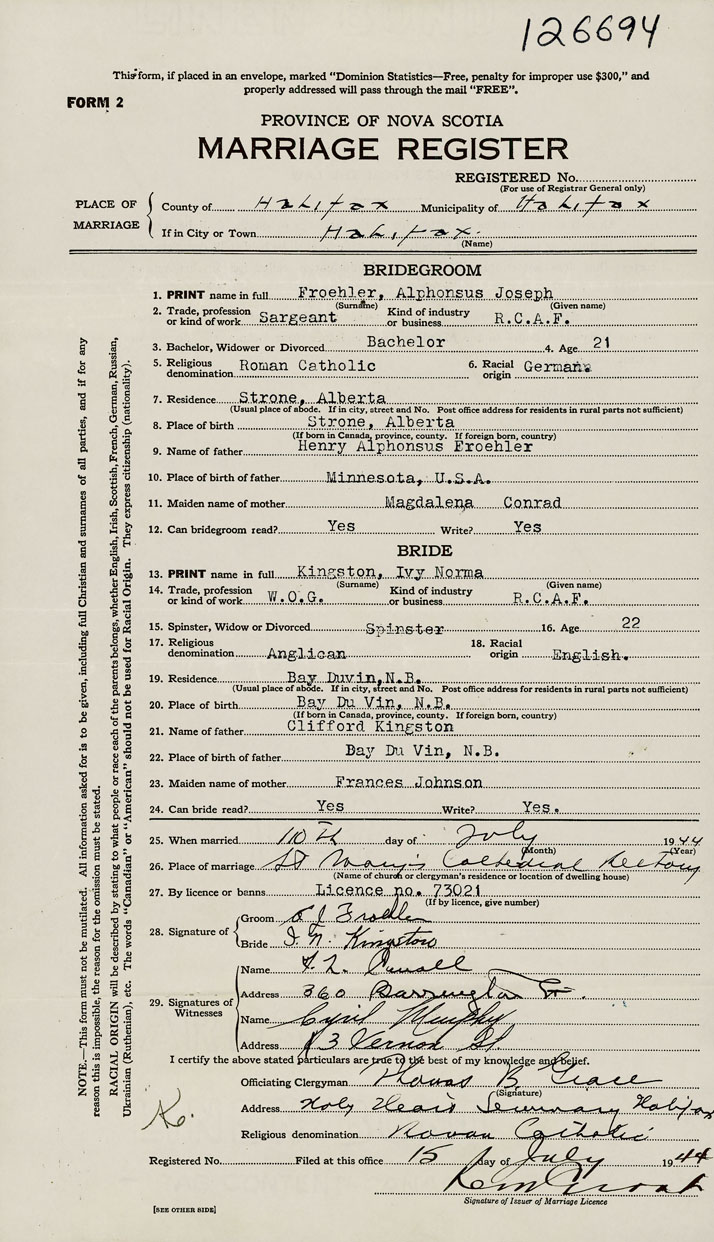 126694
This form, if placed in an envelope, marked "Dominion Statistics—Free, penalty for improper use $300," and
properly addressed will pass through the mail "FREE".
FORM 2
PROVINCE OF NOVA SCOTIA
MARRIAGE REGISTER
REGISTERED No.
(For use of Registrar General only)
PLACE OF MARRIAGE
County of Halifax Municipality of Halifax
If in City or Town Halifax.
(Name)
BRIDEGROOM
1. PRINT name in full Froehler, Alphonsus Joseph
(Surname) (Given name)
2. Trade, profession or kind of work Sargeant Kind of industry or business R.C.A.F.
3. Bachelor, Widower or Divorced Bachelor 4. Age 21
5. Religious denomination Roman Catholic 6. Racial origin German
7. Residence Strone, Alberta
(Usual place of abode. If in city, street and No. Post office address for residents in rural parts not sufficient)
8. Place of birth Strone, Alberta
(If born in Canada, province, county. If foreign born, country)
9. Name of father Henry Alphonsus Froehler
10. Place of birth of father Minnesota, U.S.A.
11. Maiden name of mother Magdalena Conrad
12. Can bridegroom read? Yes Write? Yes
BRIDE
13. PRINT name in full Kingston, Ivy Norma
(Surname) (Given name)
14. Trade, profession or kind of work W.O.G. Kind of industry or business R.C.A.F.
15. Spinster, Widow or Divorced Spinster 16. Age 22
17. Religious denomination Anglican 18. Racial origin English.
19. Residence Bay Duvin, N.B.
(Usual place of abode. If in city, street and No. Post office address for residents in rural parts not sufficient)
20. Place of birth Bay Du Vin, N.B.
(If born in Canada, province, county. If foreign born, country)
21. Name of father Clifford Kingston
22. Place of birth of father Bay Du Vin, N.B.
23. Maiden name of mother Frances Johnson
24. Can bride read? Yes Write? Yes.
25. When married 10th day of July 1944
(Month) (Year)
26. Place of marriage St Mary's Cathedral Rectory
(Name of church or clergyman's residence or location of dwelling house)
27. By licence or banns Licence no. 73021
(If by licence, give number)
28. Signature of
Groom A J Froehler
Bride I. N. Kingston
29. Signatures of Witnesses
Name
Address 360 Barrington St.
Name Cyril Murphy
Address Vernon St
I certify the above stated particulars are true to the best of my knowledge and belief.
Officiating Clergyman Thomas B Grace
(Signature)
Address Holy Heart Seminary Halifax
Religious denomination Roman Catholic
Registered No. Filed at this office 15 day of July 1944
Signature of Issuer of Marriage Licence
[SEE OTHER SIDE]
NOTE.—This form must not be mutilated. All information asked for is to be given, including full Christian and surnames of all parties, and if for any
reason this is impossible, the reason for the omission must be stated.
RACIAL ORIGIN will be described by stating to what people or race each of the parents belongs, whether English, Irish, Scottish, French, German, Russian,
Ukrainian (Ruthenian), etc. The words "Canadian" or "American" should not be used for Racial Origin. They express citizenship (nationality).